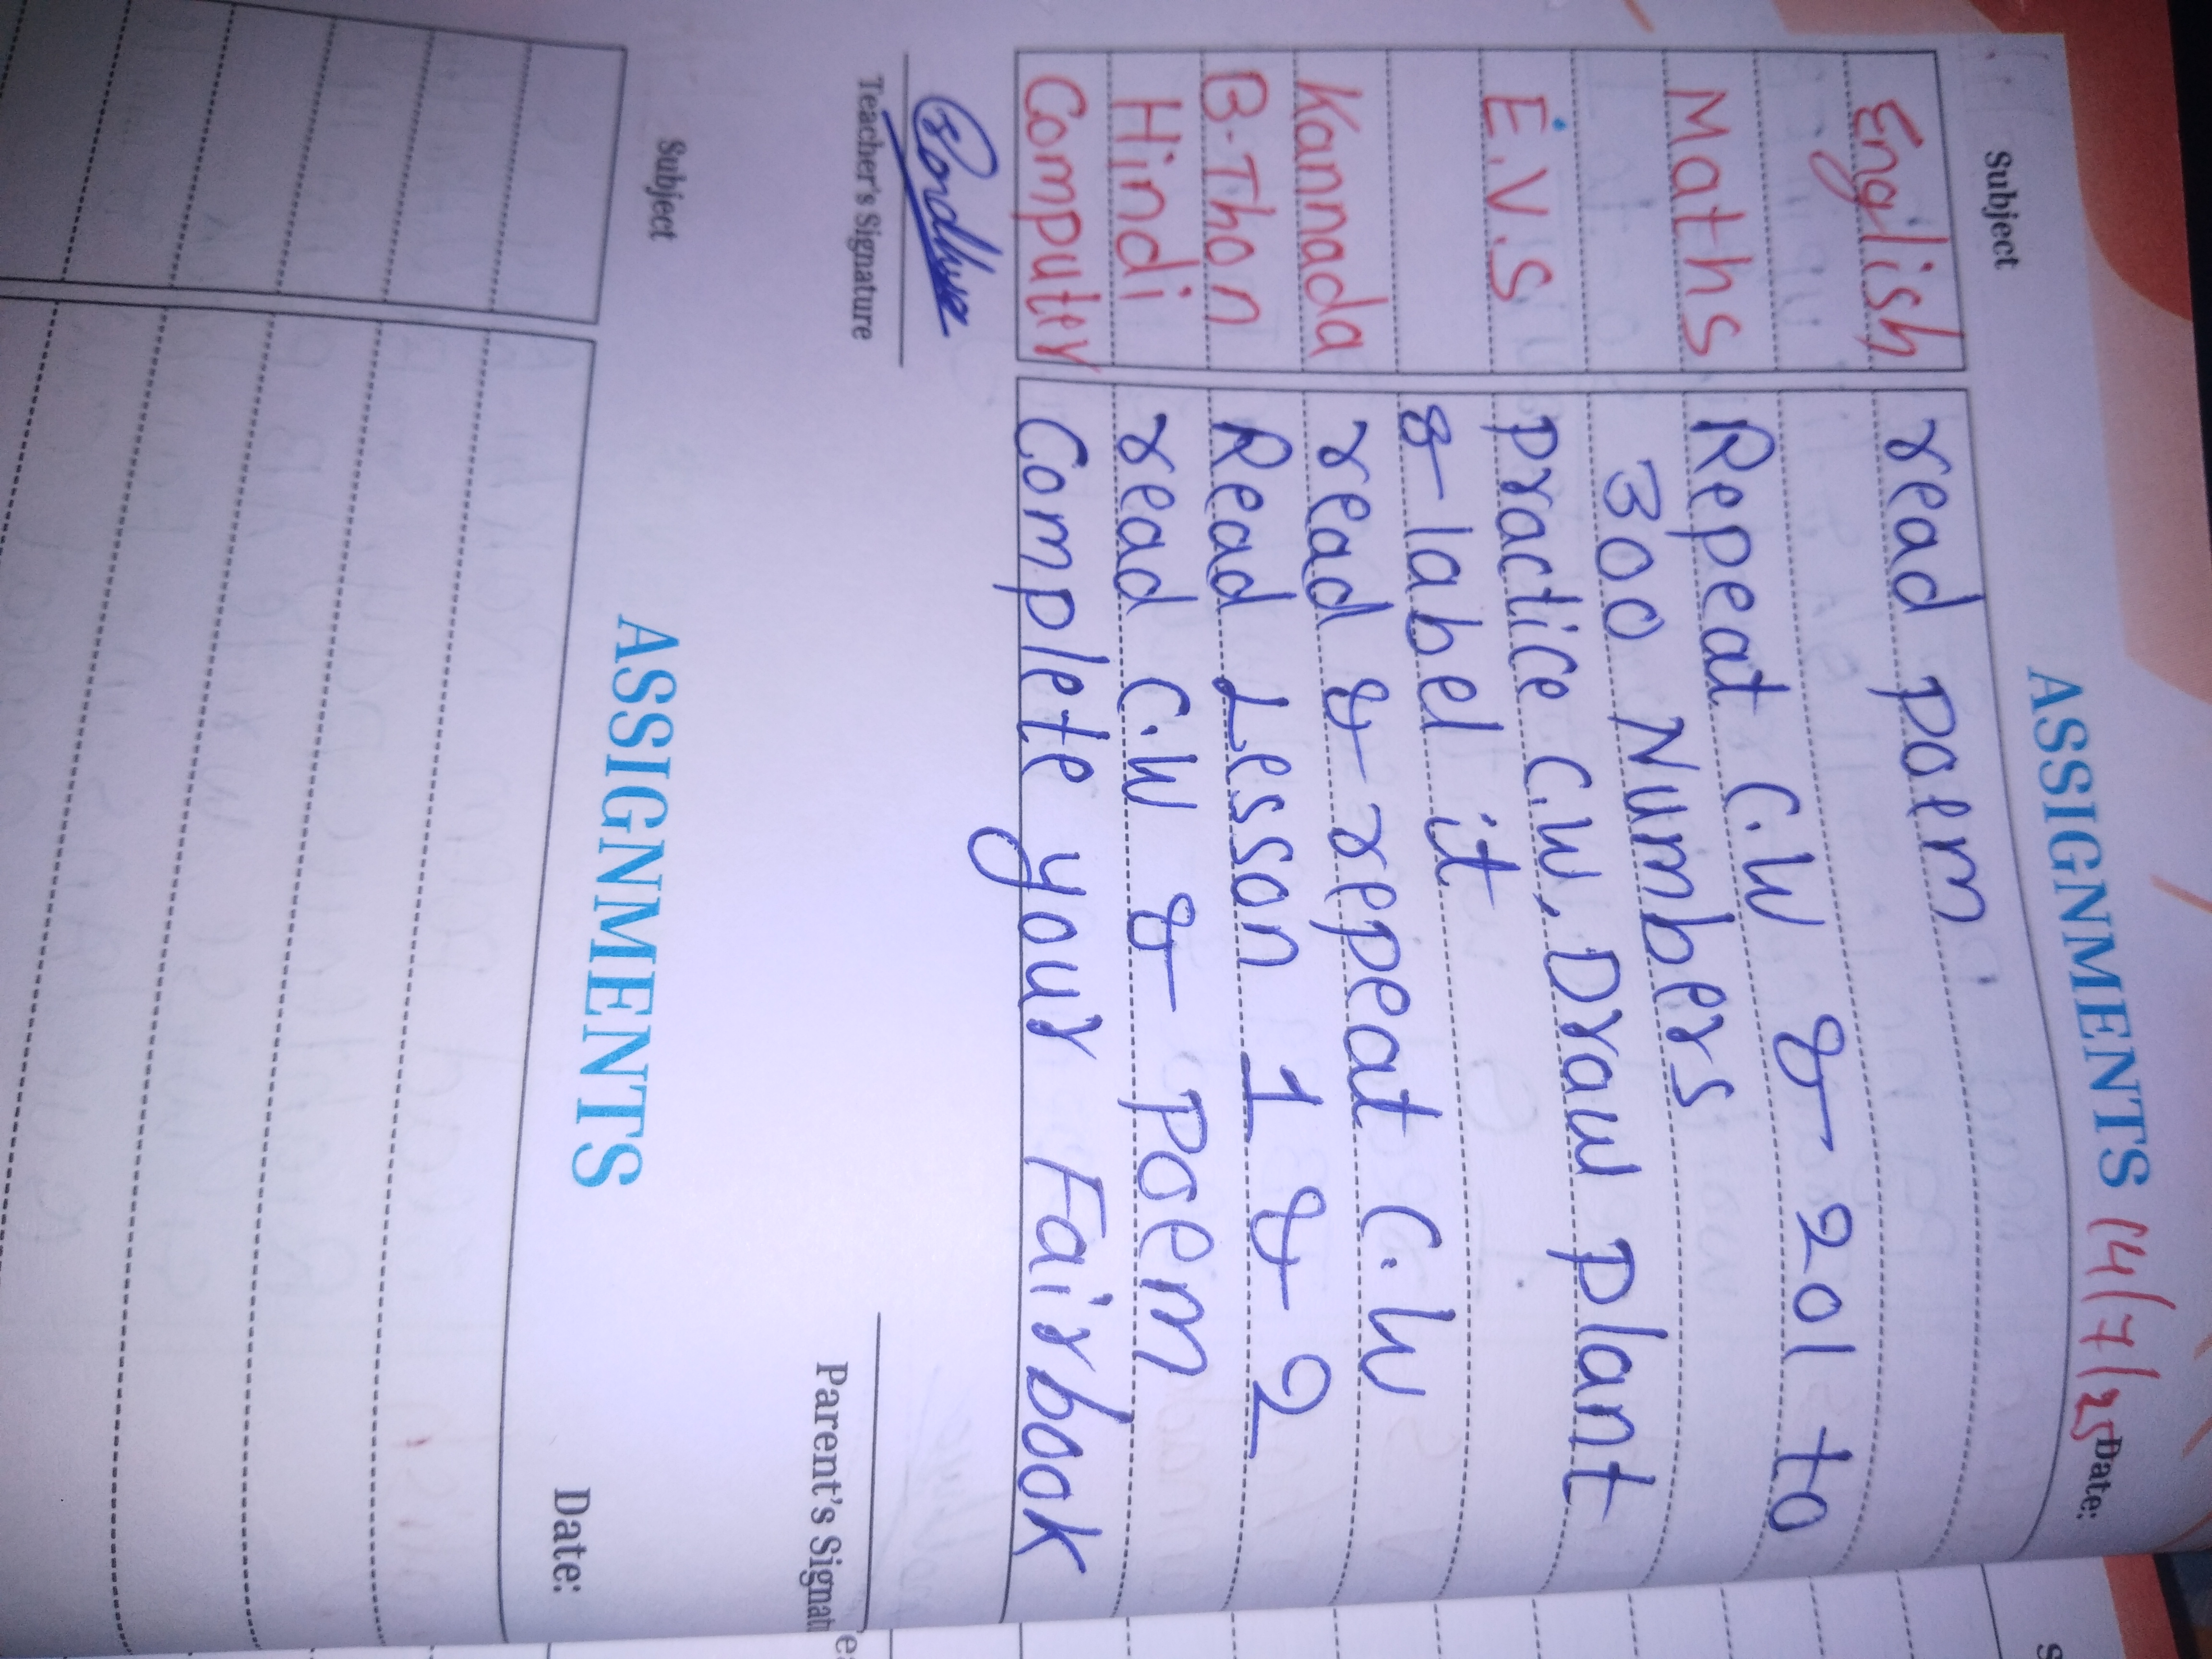 ASSIGNMENTS 14/7/25 Date:
Subject
English read poem
Maths Repeat C.W & 201 to
300 Numbers
E.V.S practice C.W, Draw plant
& label it
Kannada read & repeat C.W
B.Thon Read Lesson 1 & 2
Hindi read C.W & Poem
Computer Complete your Fairbook
Teacher's Signature Parent's Signat
ASSIGNMENTS
Subject Date: